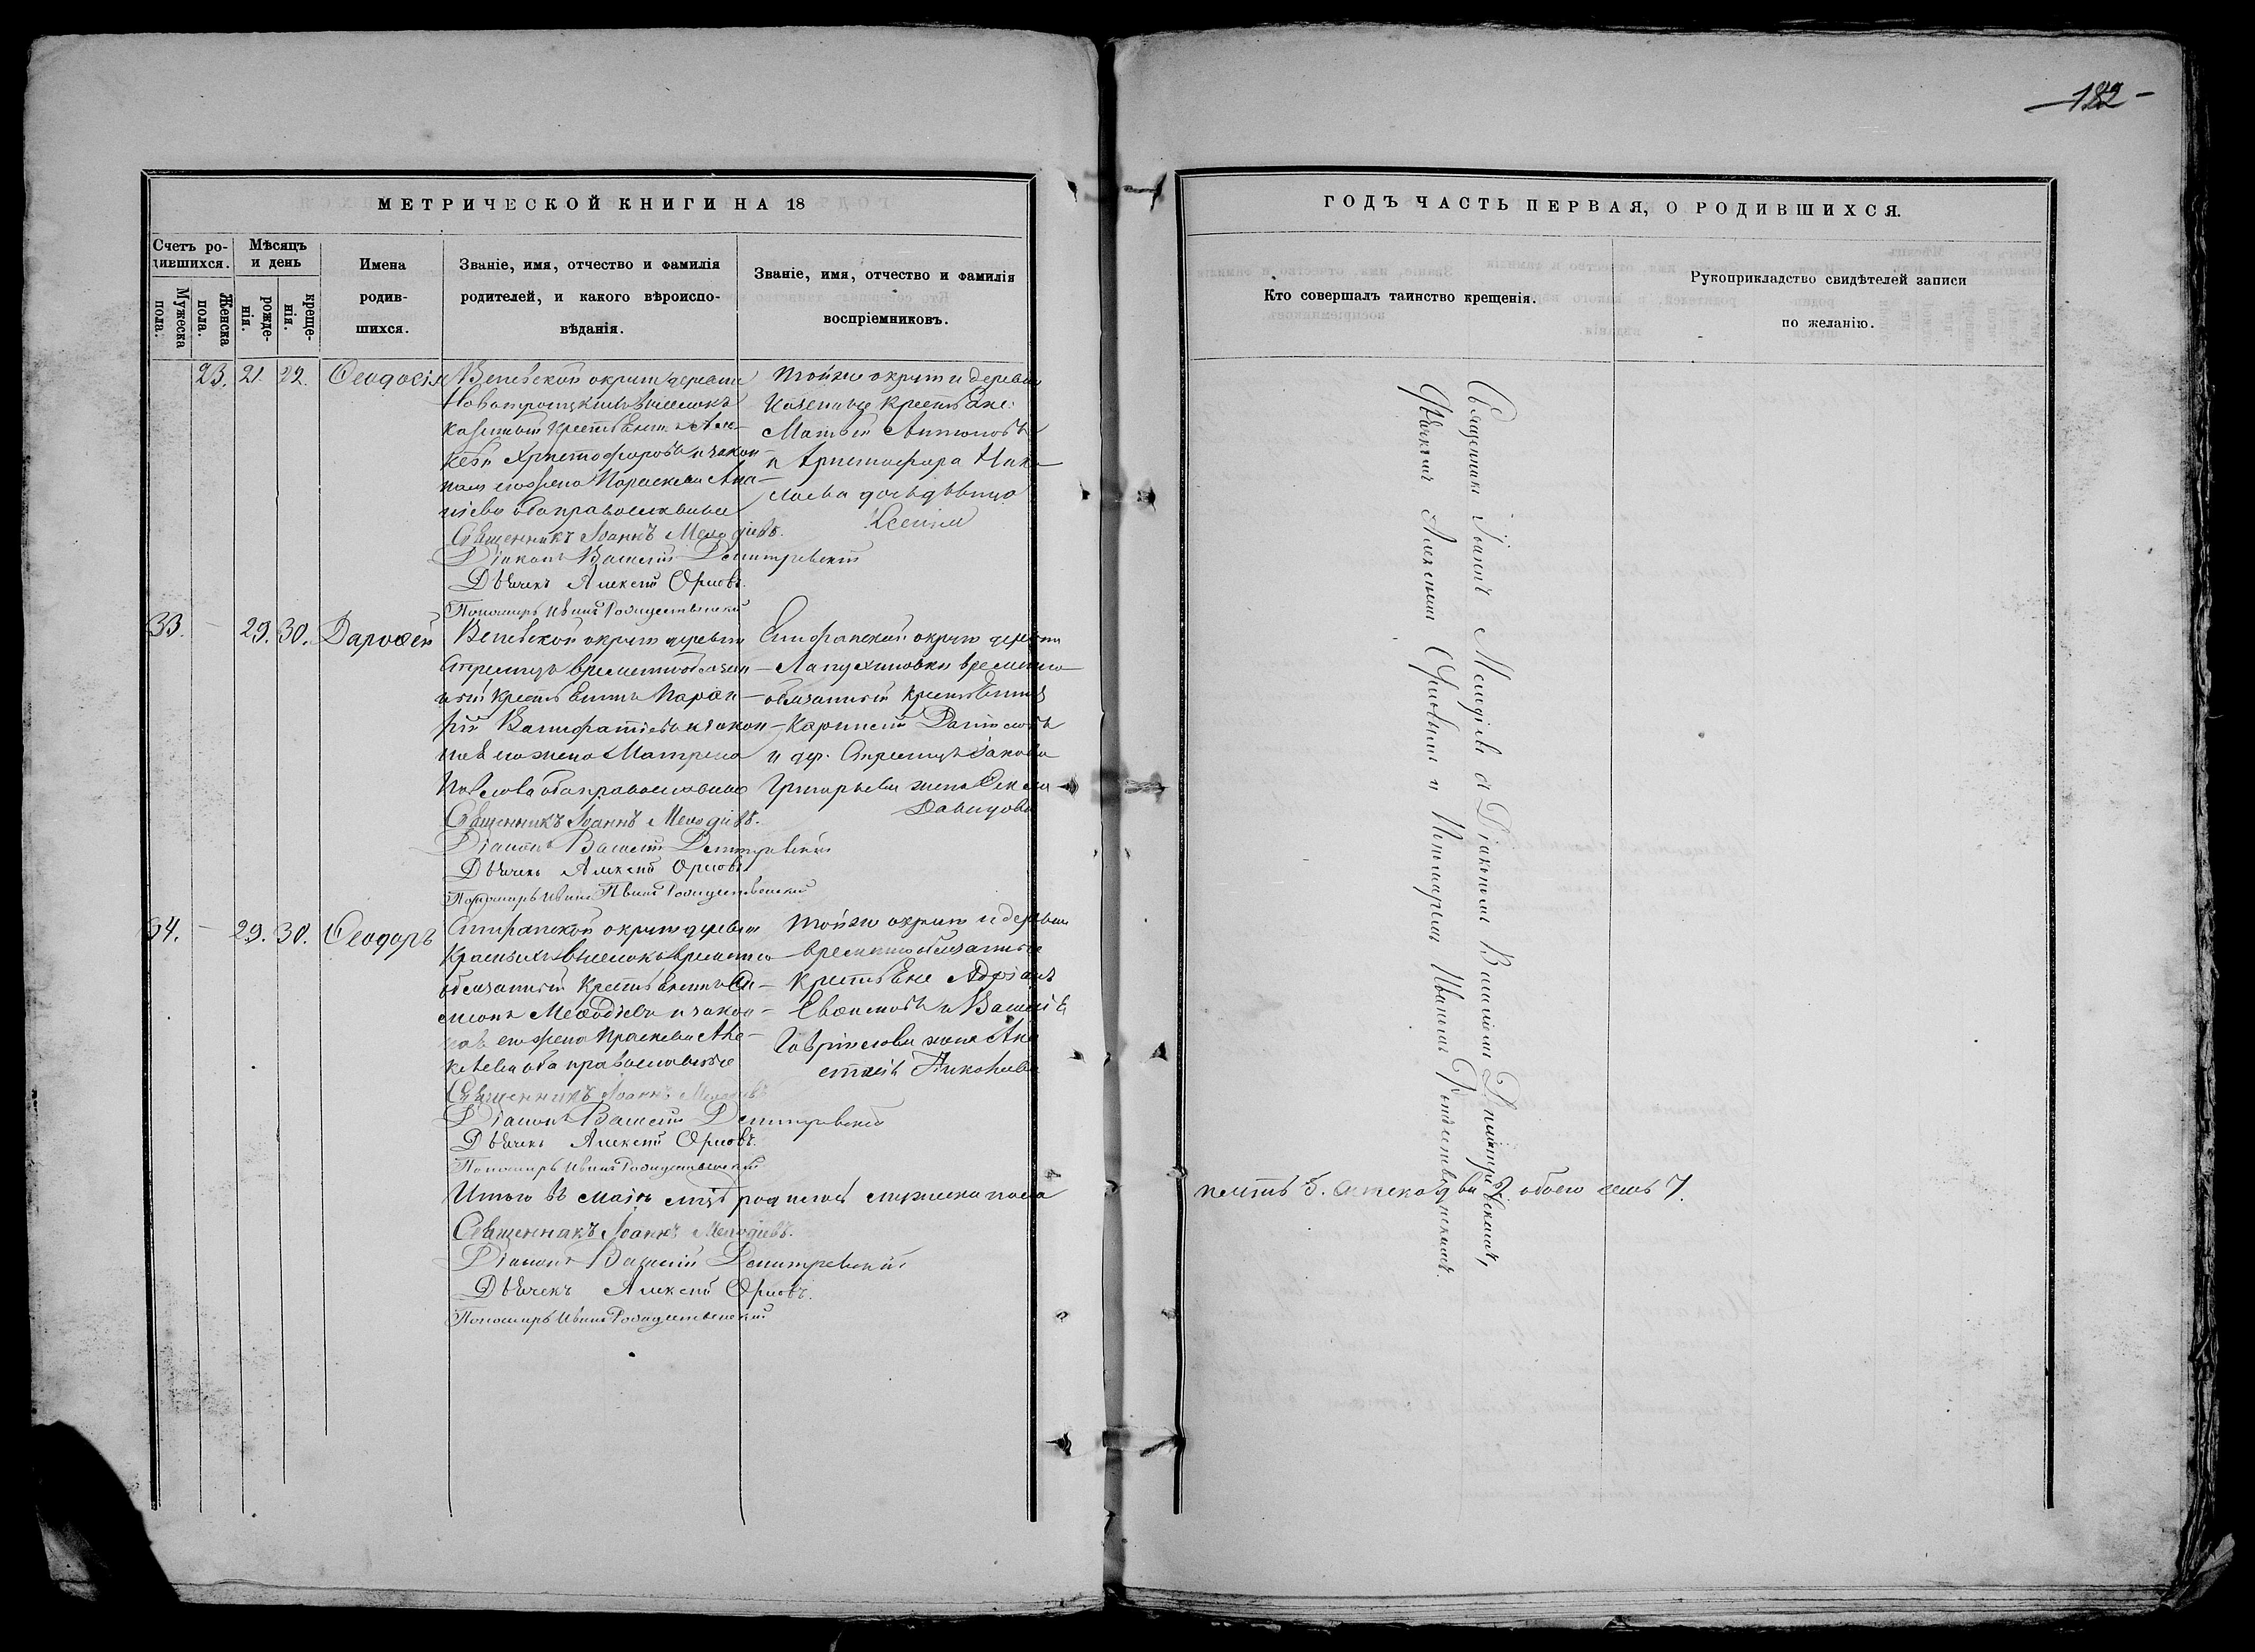 182
МЕТРИЧЕСКОЙ КНИГИ НА 18
Счетъ ро-
дившихся.
Мужеска
пола.
Женска
пола.
Мѣсяцъ
и день
рожде-
нія.
креще-
нія.
Имена
родив-
шихся.
Званіе, имя, отчество и фамилія
родителей, и какого вѣроиспо-
вѣданія.
Званіе, имя, отчество и фамилія
воспріемниковъ.
23. 21. 22. Ѳеодосія
Веневской округи деревни
крестьянинъ Але-
ксѣй Христофоровъ и закон-
ная его жена Параскева Ана-
ніева оба православные
Священникъ Іоаннъ Меѳодіевъ.
Діаконъ Василій Демитревскій
Дьячекъ Алексей Орловъ.
Пономарь Иванъ Рождественскій
Тойже округи и деревни
крестьяне:
Матвѣй Антоновъ
и Христофора Нико-
лаева дочь дѣвица
Ксенія
33. 29. 30. Дароѳей
Веневской округи деревни
временнообязан-
ный крестьянинъ
и закон-
ная его жена Матрена
Павлова оба православные
Священникъ Іоаннъ Меѳодіевъ.
Діаконъ Василій Демитревскій
Дьячекъ Алексей Орловъ
Пономарь Иванъ Рождественскій
Епифанской округи деревни
Лапухиновки временно-
обязанный крестьянинъ
Даниловъ
и дер. Іакова
Григорьева жена
Давыдова
34. 29. 30. Ѳеодоръ
Епифанской округи деревни
Красныхъ временно
обязанный крестьянинъ Си-
меонъ Меѳодіевъ и закон-
ная его жена Праскева Але-
ксѣева оба православные
Священникъ Іоаннъ Меѳодіевъ
Діаконъ Василій Демитревскій
Дьячекъ Алексей Орловъ.
Пономарь Иванъ Рождественскій
Тойже округи и деревни
временнообязанные
крестьяне Адріанъ
и Василія
Гавриілова жена Ана-
стасія
Итого въ маіѣ мцѣ родилось мужеска пола
Священникъ Іоаннъ Меѳодіевъ.
Діаконъ Василій Демитревскій
Дьячекъ Алексей Орловъ.
Пономарь Иванъ Рождественскій
ГОДЪ ЧАСТЬ ПЕРВАЯ, О РОДИВШИХСЯ.
Кто совершалъ таинство крещенія.
Рукоприкладство свидѣтелей записи
по желанію.
Священникъ Іоаннъ Меѳодіевъ съ Діакономъ Василіемъ Димитревскимъ,
Дьячкомъ Алексѣемъ Орловымъ и Пономаремъ Иваномъ Рождественскимъ.
пять 5. женска два 2. обоего семь 7.